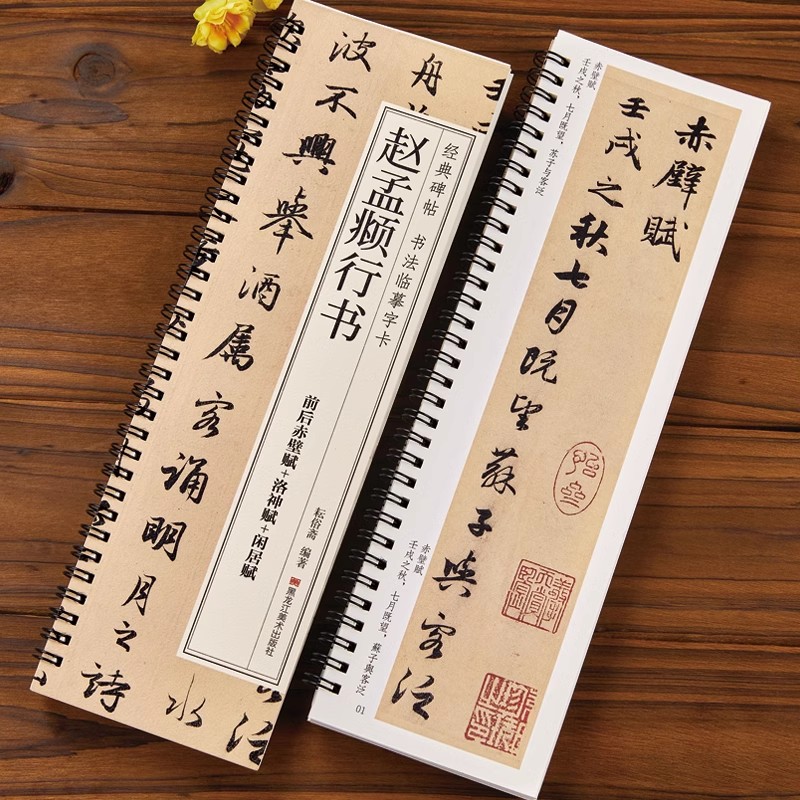 舟
波不興舉酒屬客誦明月之詩
水
经典碑帖 书法临摹字卡
赵孟𫖯行书
前后赤壁赋+洛神赋+闲居赋
耘俗斋 编著
黑龙江美术出版社
赤壁赋
壬戌之秋，七月既望，苏子与客泛
赤壁賦
壬戌之秋七月既望蘇子與客泛
赤壁賦
壬戌之秋，七月既望，蘇子與客泛
01